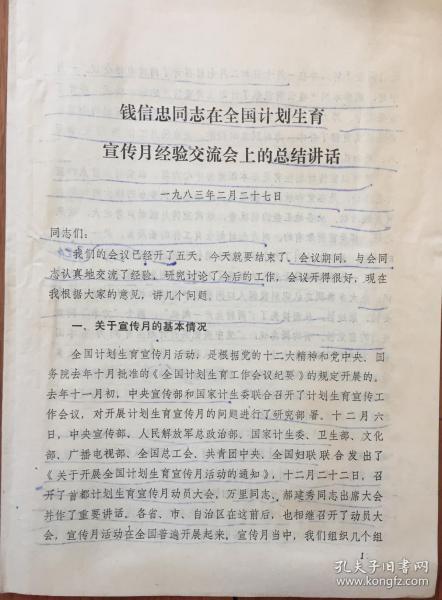 钱信忠同志在全国计划生育
宣传月经验交流会上的总结讲话
一九八三年二月二十七日
同志们：
我们的会议已经开了五天，今天就要结束了。会议期间，与会同
志认真地交流了经验，研究讨论了今后的工作，会议开得很好，现在
我根据大家的意见，讲几个问题。
一、关于宣传月的基本情况
全国计划生育宣传月活动，是根据党的十二大精神和党中央、国
务院去年十月批准的《全国计划生育工作会议纪要》的规定开展的。
去年十一月初，中央宣传部和国家计生委联合召开了计划生育宣传工
作会议，对开展计划生育宣传月的问题进行了研究部署。十二月六
日，中央宣传部、人民解放军总政治部、国家计生委、卫生部、文化
部、广播电视部、全国总工会、共青团中央、全国妇联联合发出了
《关于开展全国计划生育宣传月活动的通知》，十二月二十二日，召
开了首都计划生育宣传月动员大会，万里同志、郝建秀同志出席大会
并作了重要讲话。各省、市、自治区在这前后，也相继召开了动员大
会，宣传月活动在全国普遍开展起来，宣传月当中，我们组织几个组
1
孔夫子旧书网
www.kongfz.com